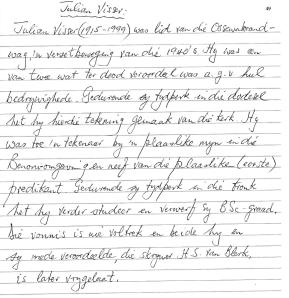 Julian Visser.
Julian Visser (1915-1999) was lid van die Ossewabrand-
wag, 'n versetbeweging van die 1940's. Hy was een
van twee wat ter dood veroordeel was a.g.v. hul
bedrywighede. Gedurende sy tydperk in die dodesel
het hy hierdie tekening gemaak van die kerk. Hy
was toe 'n tekenaar by 'n plaaslike myn in die
Benoniomgewing en neef van die plaaslike (eerste)
predikant. Gedurende sy tydperk en die tronk
het hy verder studeer en verwerf sy BSc-graad.
Die vonnis is nie voltrek en beide hy en
sy mede veroordeelde, die skrywer H.S. van Blerk,
is later vrygelaat.